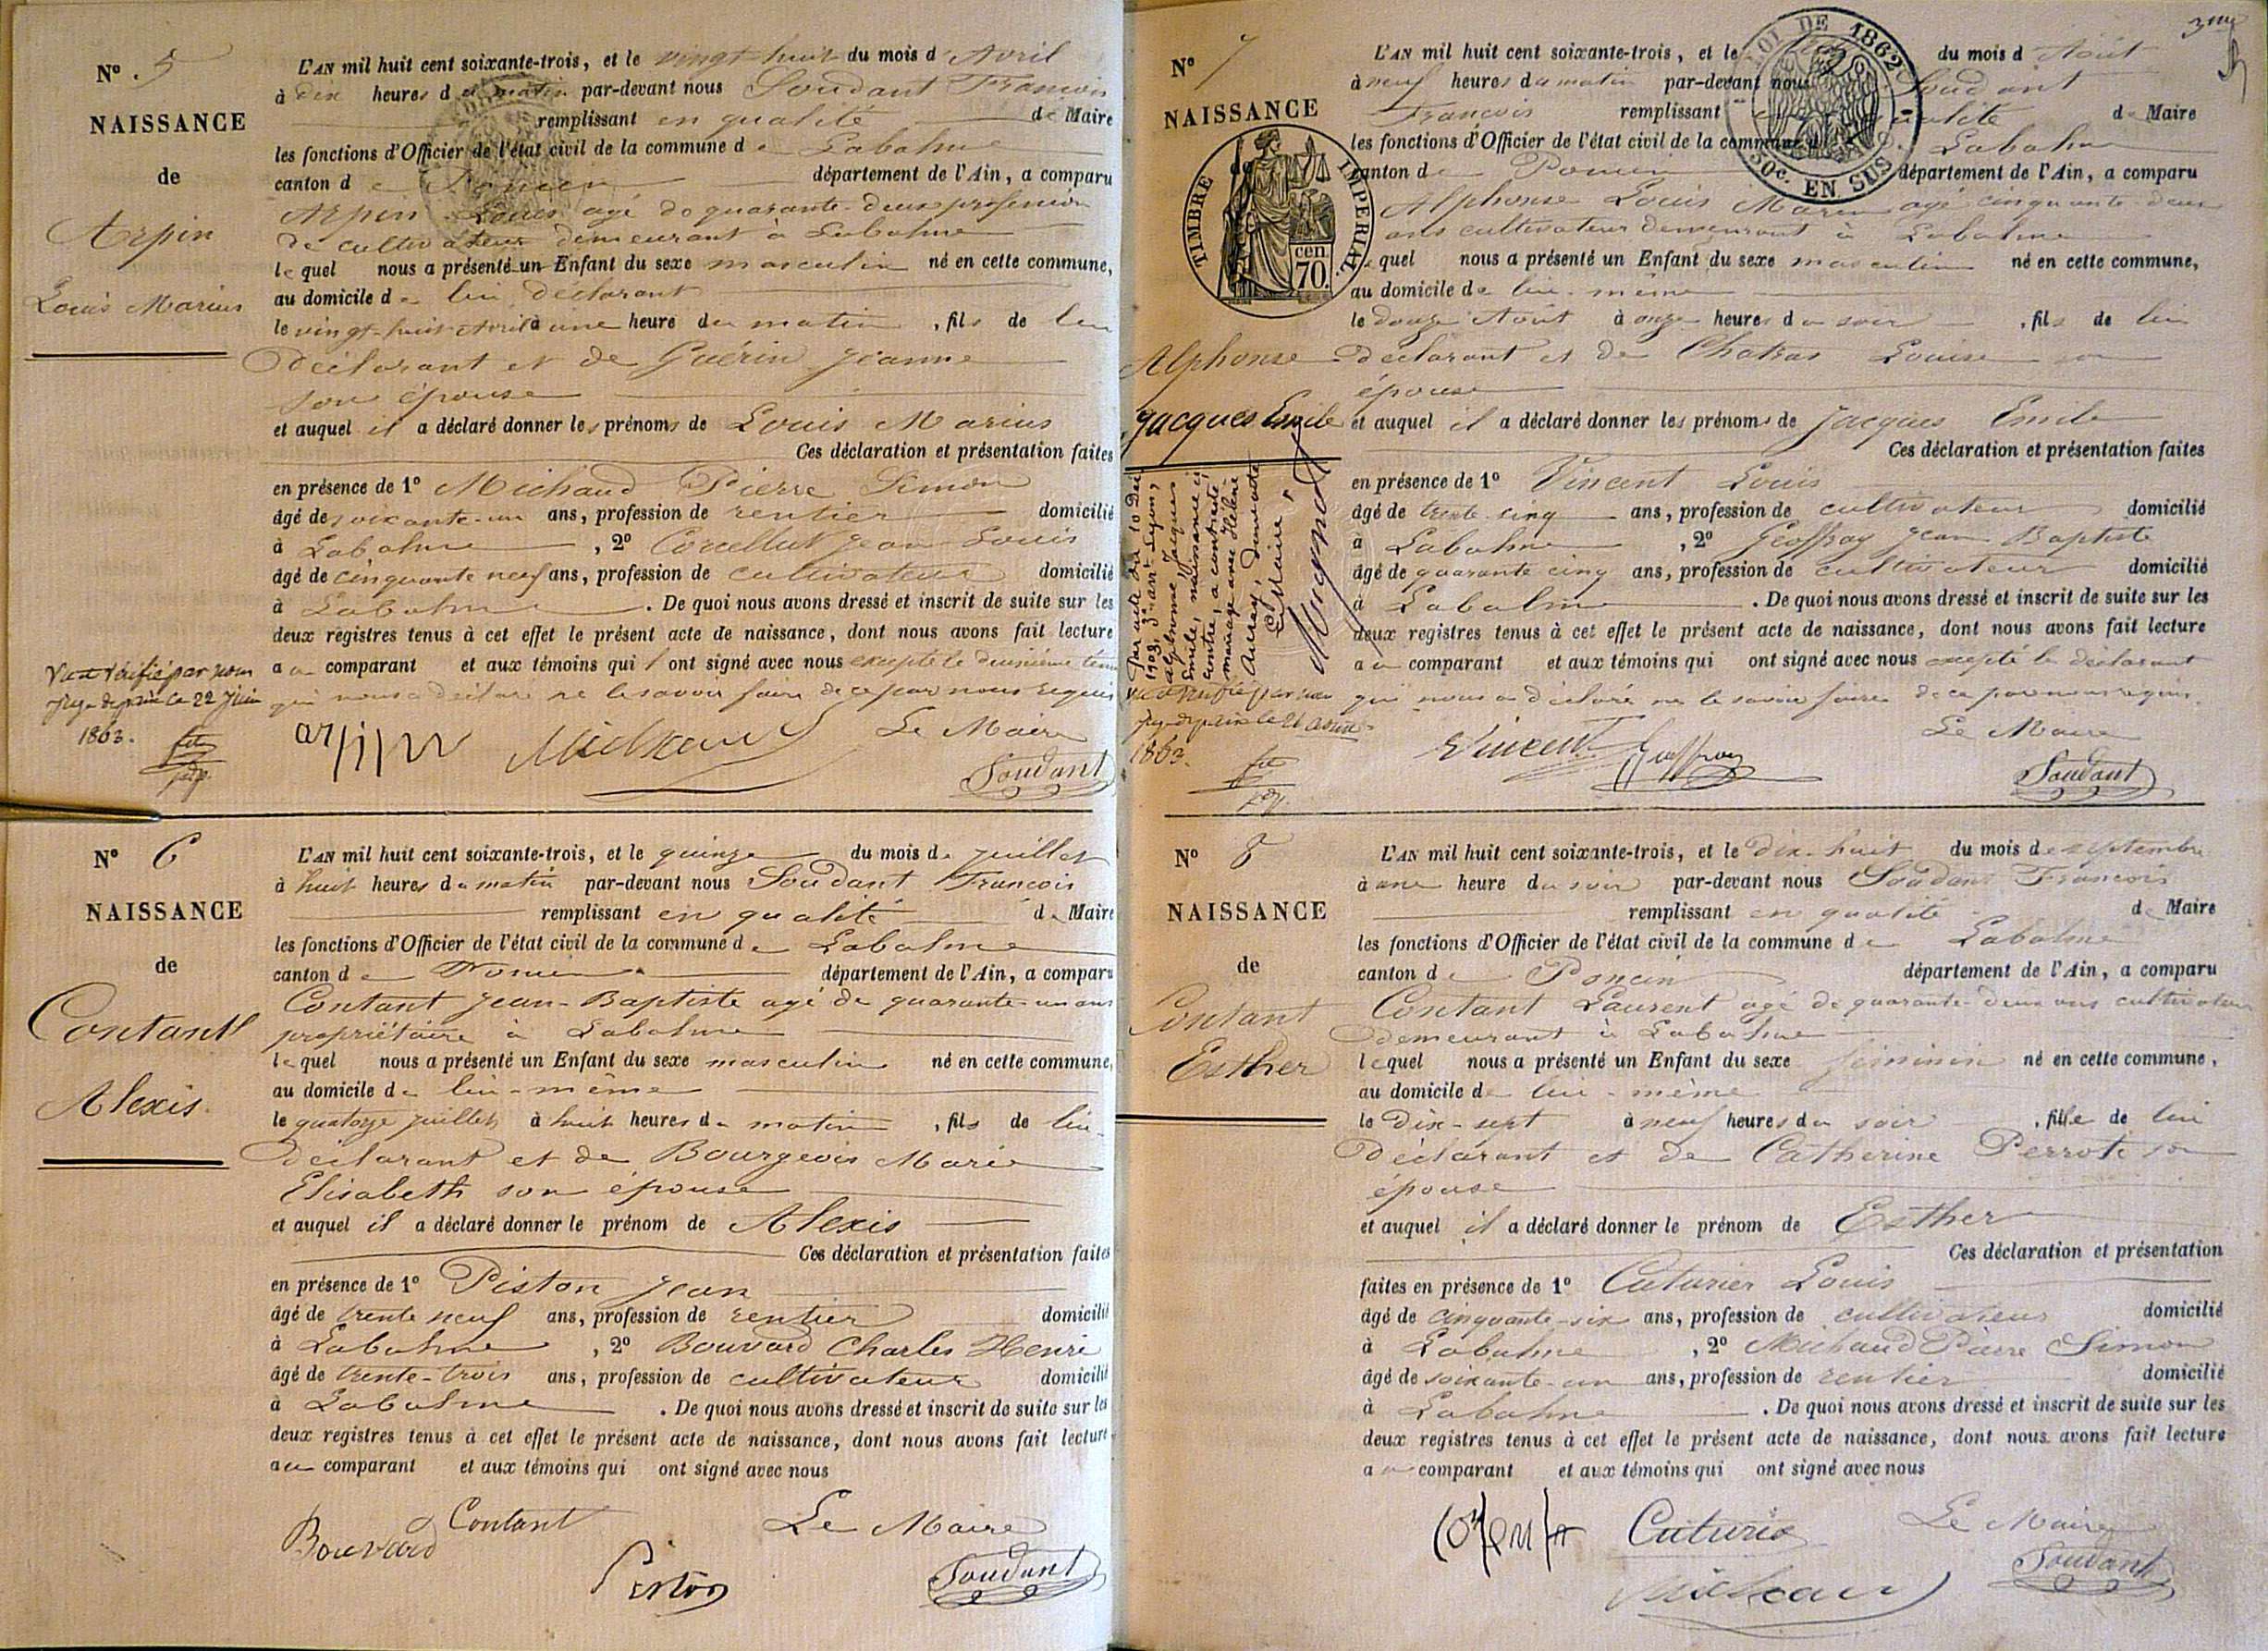 N° 5
NAISSANCE
de
Arpin
Louis Marius
L'AN mil huit cent soixante-trois, et le vingt huit du mois d'Avril
à dix heures du matin par-devant nous Soudant François
remplissant en qualité de Maire
les fonctions d'Officier de l'état civil de la commune de Labalme
canton de Poncin département de l'Ain, a comparu
Arpin Louis agé de quarante-deux profession
de cultivateur demeurant à Labalme
lequel nous a présenté un Enfant du sexe masculin né en cette commune,
au domicile de lui déclarant
le vingt-huit Avril à une heure du matin, fils de lui
déclarant et de Guérin Jeanne
son épouse
et auquel il a déclaré donner les prénoms de Louis Marius
Ces déclaration et présentation faites
en présence de 1° Michaud Pierre Simon
âgé de soixante-un ans, profession de rentier domicilié
à Labalme, 2° Corcellut Jean Louis
âgé de cinquante neuf ans, profession de cultivateur domicilié
à Labalme. De quoi nous avons dressé et inscrit de suite sur les
deux registres tenus à cet effet le présent acte de naissance, dont nous avons fait lecture
au comparant et aux témoins qui l'ont signé avec nous excepté le deuxième
qui nous a déclaré ne le savoir faire de ce par nous requis
Vu et vérifié par nous
juge de paix le 22 Juin
1863.
arpin Michaud Le Maire
Soudant
N° 6
NAISSANCE
de
Contant
Alexis
L'AN mil huit cent soixante-trois, et le quinze du mois de juillet
à huit heures du matin par-devant nous Soudant François
remplissant en qualité de Maire
les fonctions d'Officier de l'état civil de la commune de Labalme
canton de Poncin département de l'Ain, a comparu
Contant Jean-Baptiste agé de quarante-un ans
propriétaire à Labalme
lequel nous a présenté un Enfant du sexe masculin né en cette commune,
au domicile de lui-même
le quatorze juillet à huit heures du matin, fils de lui-
déclarant et de Bourgeois Marie
Elisabeth son épouse
et auquel il a déclaré donner le prénom de Alexis
Ces déclaration et présentation faites
en présence de 1° Piston Jean
âgé de trente neuf ans, profession de rentier domicilié
à Labalme, 2° Bouvard Charles Henri
âgé de trente-trois ans, profession de cultivateur domicilié
à Labalme. De quoi nous avons dressé et inscrit de suite sur les
deux registres tenus à cet effet le présent acte de naissance, dont nous avons fait lecture
au comparant et aux témoins qui ont signé avec nous
Contant Le Maire
Bouvard Piston Soudant
3me
N° 7
NAISSANCE
de
TIMBRE IMPERIAL
cen
70.
LOI DE 1862
50c. EN SUS
Alphonse
Jacques Emile
L'AN mil huit cent soixante-trois, et le du mois d'Août
à neuf heures du matin par-devant nous Soudant
François remplissant en qualité de Maire
les fonctions d'Officier de l'état civil de la commune de Labalme
canton de Poncin département de l'Ain, a comparu
Alphonse Louis Marie agé cinquante-deux
ans cultivateur demeurant à Labalme
lequel nous a présenté un Enfant du sexe masculin né en cette commune,
au domicile de lui-même
le douze Août à onze heures du soir, fils de lui
déclarant et de Chatras Louise son
épouse
et auquel il a déclaré donner les prénoms de Jacques Emile
Ces déclaration et présentation faites
en présence de 1° Vincent Louis
âgé de trente cinq ans, profession de cultivateur domicilié
à Labalme, 2° Geoffray Jean Baptiste
âgé de quarante cinq ans, profession de cultivateur domicilié
à Labalme. De quoi nous avons dressé et inscrit de suite sur les
deux registres tenus à cet effet le présent acte de naissance, dont nous avons fait lecture
au comparant et aux témoins qui ont signé avec nous excepté le déclarant
qui nous a déclaré ne le savoir faire de ce par nous requis.
Par acte du 10
1903, 3e arrt Lyon,
Alphonse, Jacques
Emile, naissance ci
contre, a contracté
mariage avec Hélène
Le Maire,
Vu et vérifié par nous
juge de paix le 21
1863.
Le Maire
Vincent Geoffray Soudant
N° 8
NAISSANCE
de
Contant
Esther
L'AN mil huit cent soixante-trois, et le dix-huit du mois de septembre
à une heure du soir par-devant nous Soudant François
remplissant en qualité de Maire
les fonctions d'Officier de l'état civil de la commune de Labalme
canton de Poncin département de l'Ain, a comparu
Contant Laurent agé de quarante-deux ans cultivateur
demeurant à Labalme
lequel nous a présenté un Enfant du sexe féminin né en cette commune,
au domicile de lui-même
le dix-sept à neuf heures du soir, fille de lui
déclarant et de Catherine Perrote son
épouse
et auquel il a déclaré donner le prénom de Esther
Ces déclaration et présentation
faites en présence de 1° Cuturier Louis
âgé de cinquante-six ans, profession de cultivateur domicilié
à Labalme, 2° Michaud Pierre Simon
âgé de soixante-un ans, profession de rentier domicilié
à Labalme. De quoi nous avons dressé et inscrit de suite sur les
deux registres tenus à cet effet le présent acte de naissance, dont nous avons fait lecture
au comparant et aux témoins qui ont signé avec nous
Cuturie Le Maire
Michaud Soudant